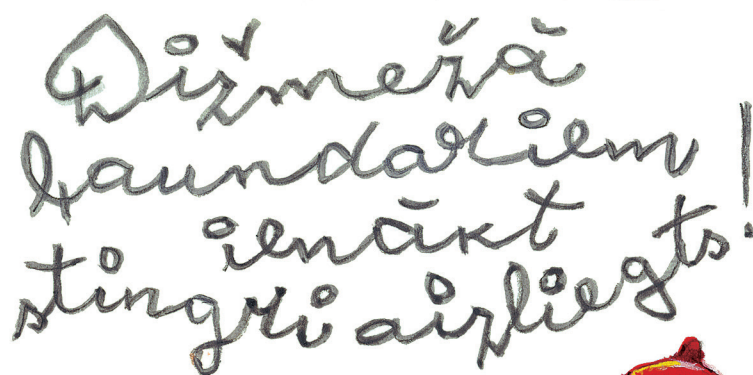 Dižmežā
ļaundariem
ienākt
stingri aizliegts!